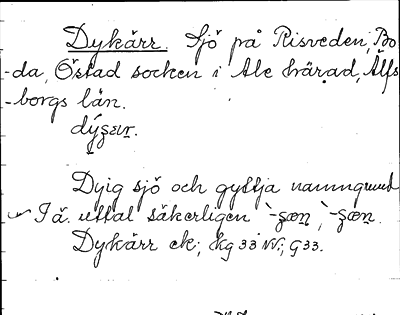 Dykärr. Sjö på Risveden, Bo
-da, Östad socken i Ale härad, Älfs
-borgs län.
dýʂær.
Dyig sjö och gyttja namngrund
I ä. uttal säkerligen `-ʂæn, `-ʂæn.
Dykärr ek; kg 33 NV; G33.